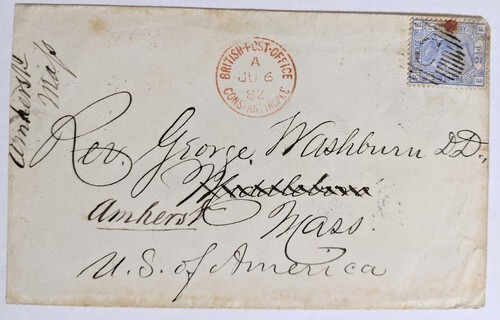 Amherst
Mass
BRITISH-POST-OFFICE
A
JU 6
82
CONSTANTINOPLE
Rev. George Washburn D.D.,
Middleboro
Amherst Mass.
U.S. of America